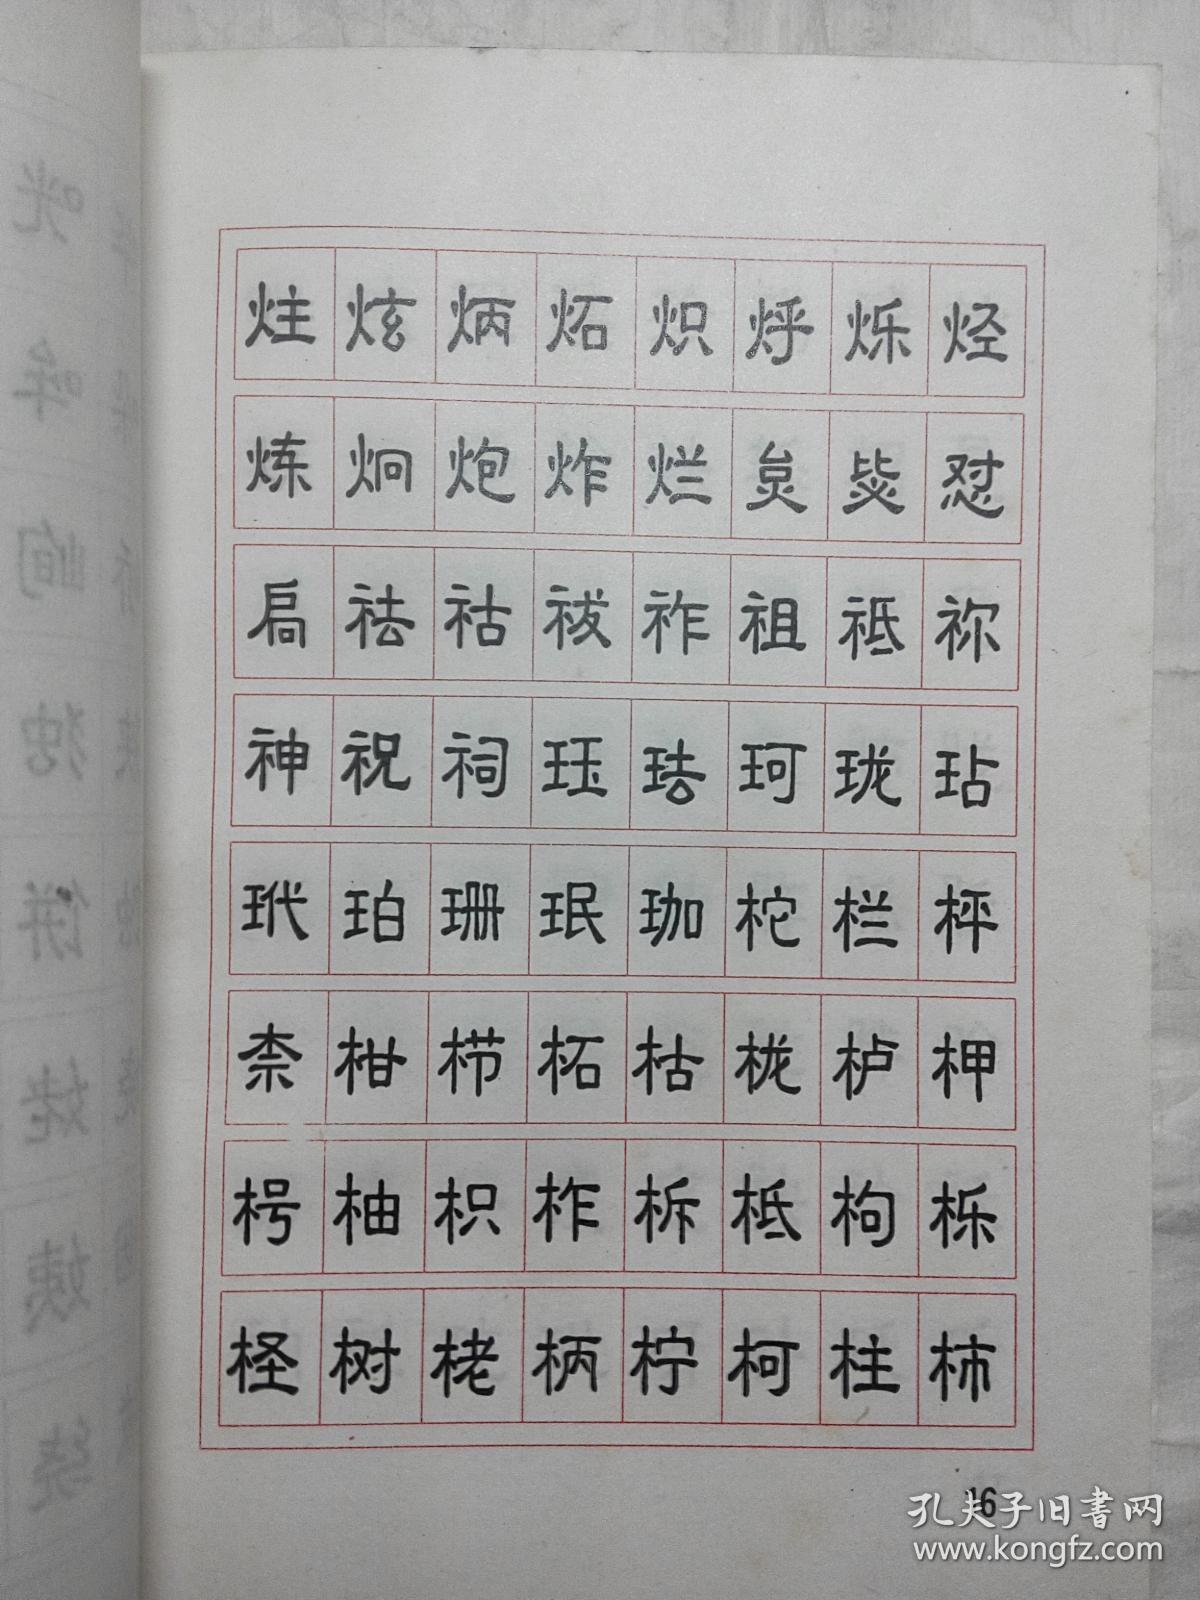 炷 炫 炳 炻 炽 烀 烁 烃
炼 炯 炮 炸 烂 炱 怼
扃 祛 祜 祓 祚 祖 祗 祢
神 祝 祠 珏 珐 珂 珑 玷
玳 珀 珊 珉 珈 柁 栏 枰
柰 柑 栉 柘 枯 栊 栌 柙
枵 柚 枳 柞 柝 柢 枸 栎
柽 树 栳 柄 柠 柯 柱 柿
16
孔夫子旧書网
www.kongfz.com